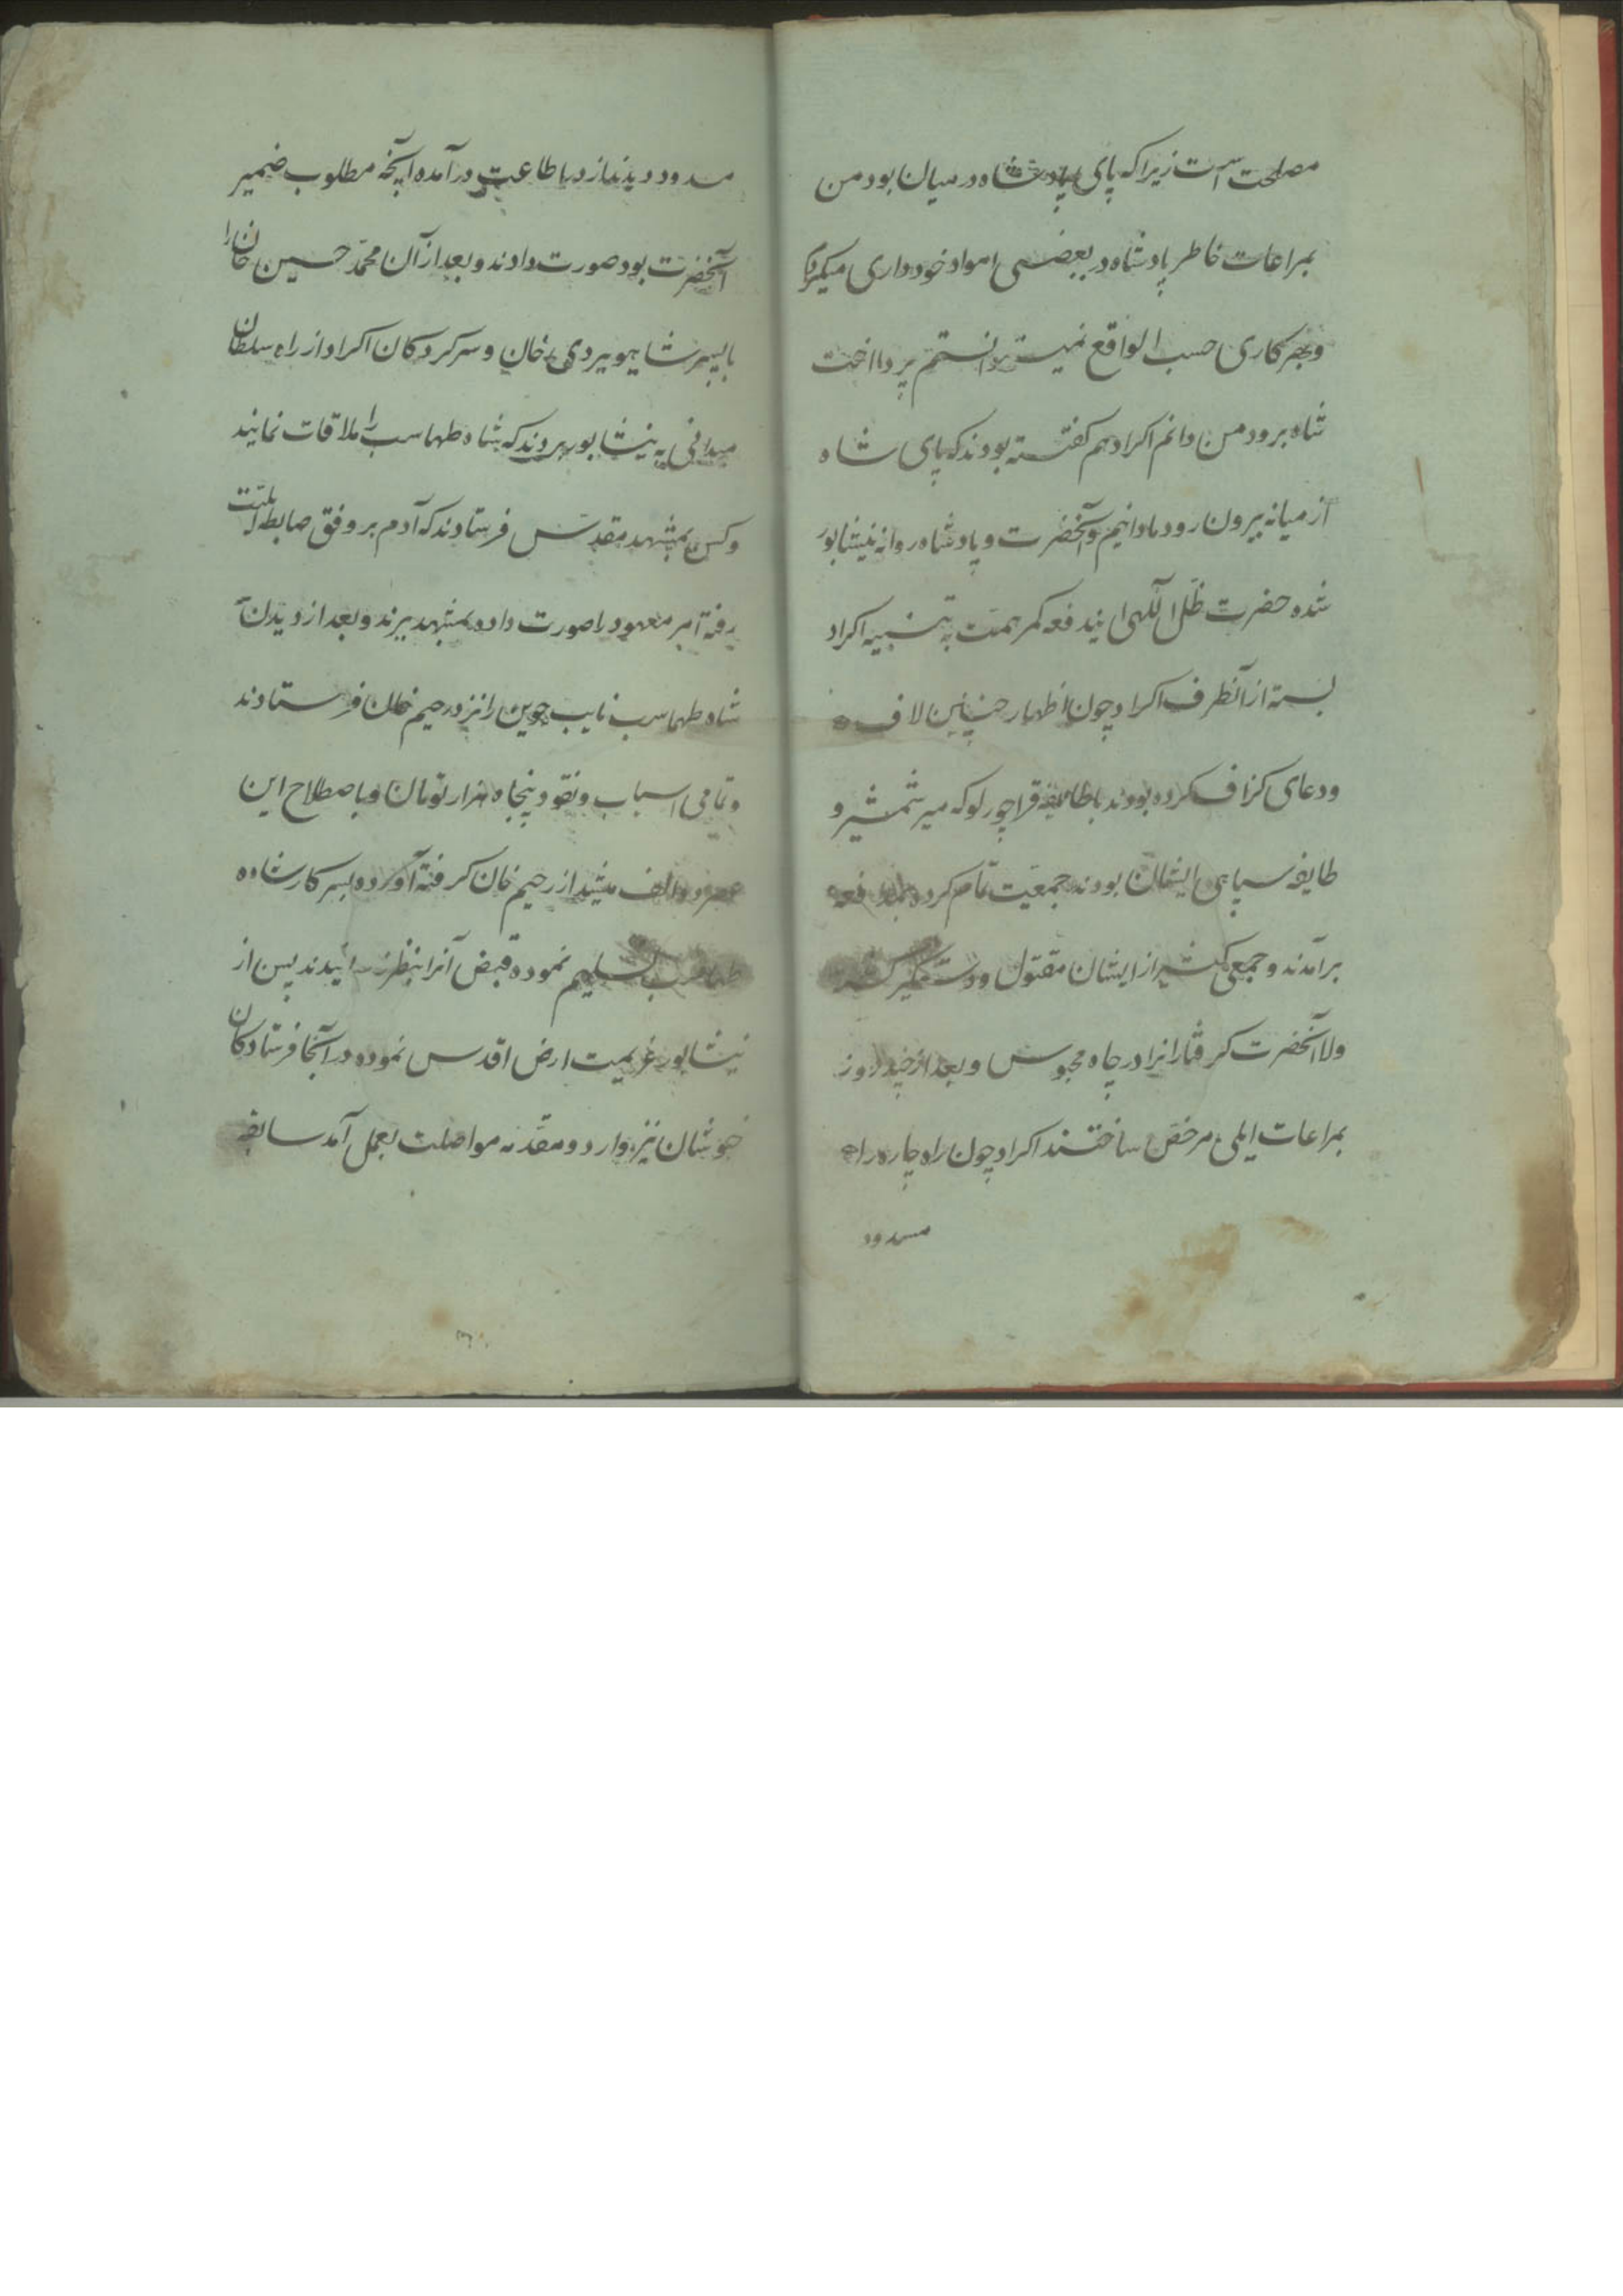 مصلحت است زیرا که پای پادشاه در میان بود من
بمراعات خاطر پادشاه در بعضی امواد خودداری میکردم
و بهر کاری حسب الواقع نمیتوانستم پرداخت
شاه برود من دانم اکراد هم کفته بودند که پای شاه
از میانه بیرون رود ما دانیم و آنحضرت و پادشاه روانه نیشابور
شده حضرت ظل اللهی ایندفعه کمر همت به تنبیه اکراد
بسته از آنطرف اکراد چون اظهار چنین لاف
و دعای کزاف کرده بودند با طایفه قراچورلو که میر شمشیر و
طایفه سپاهی ایشان بودند جمعیت تمام کرده بمدافعه
برآمدند و جمعی کثیر از ایشان مقتول و دستکیر
آنحضرت کرفتارانرا در چاه محبوس و بعد از چند روز
بمراعات ایلی مرخص ساختند اکراد چون راه چاره را
مسدود
مسدود دیدند از در اطاعت درآمده آنچه مطلوب ضمیر
آنحضرت بود صورت دادند و بعد از آن محمد حسین خان را
با پسر شاهویردی خان و سرکردکان اکراد از راه سلطان
میدانی به نیشابور بردند که شاه طهماسب را ملاقات نمایند
و کس بمشهد مقدس فرستادند که آدم بر وفق ضابطه ایلیت
رفته امر معهود را صورت داده بمشهد برند و بعد از دیدن
شاه طهماسب نایب جوین را نزد رحیم خان فرستادند
و تمامی اسباب و نقود پنجاه هزار تومان و باصطلاح این
الف میشد از رحیم خان کرفته آورده بسرکار شاه
طهماسب تسلیم نموده قبض آنرا بنظر رسانیدند پس از
نیشابور عزیمت ارض اقدس نموده در آنجا فرستادکان
خبوشان نیز وارد و مقدمه مواصلت بعمل آمد سابقه